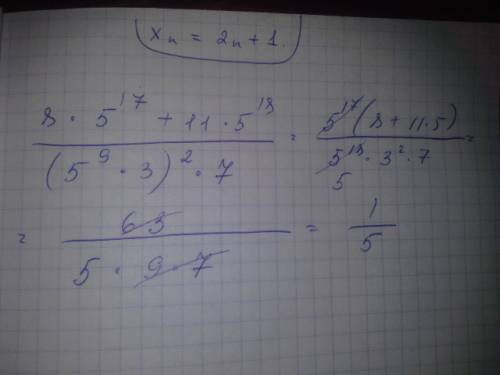 xₙ = 2ₙ + 1.
(8 · 5¹⁷ + 11 · 5¹⁸) / ((5⁹ · 3)² · 7) = 5¹⁷(8 + 11·5) / (5¹⁸ · 3² · 7) =
5
= 63 / (5 · 9 · 7) = 1/5